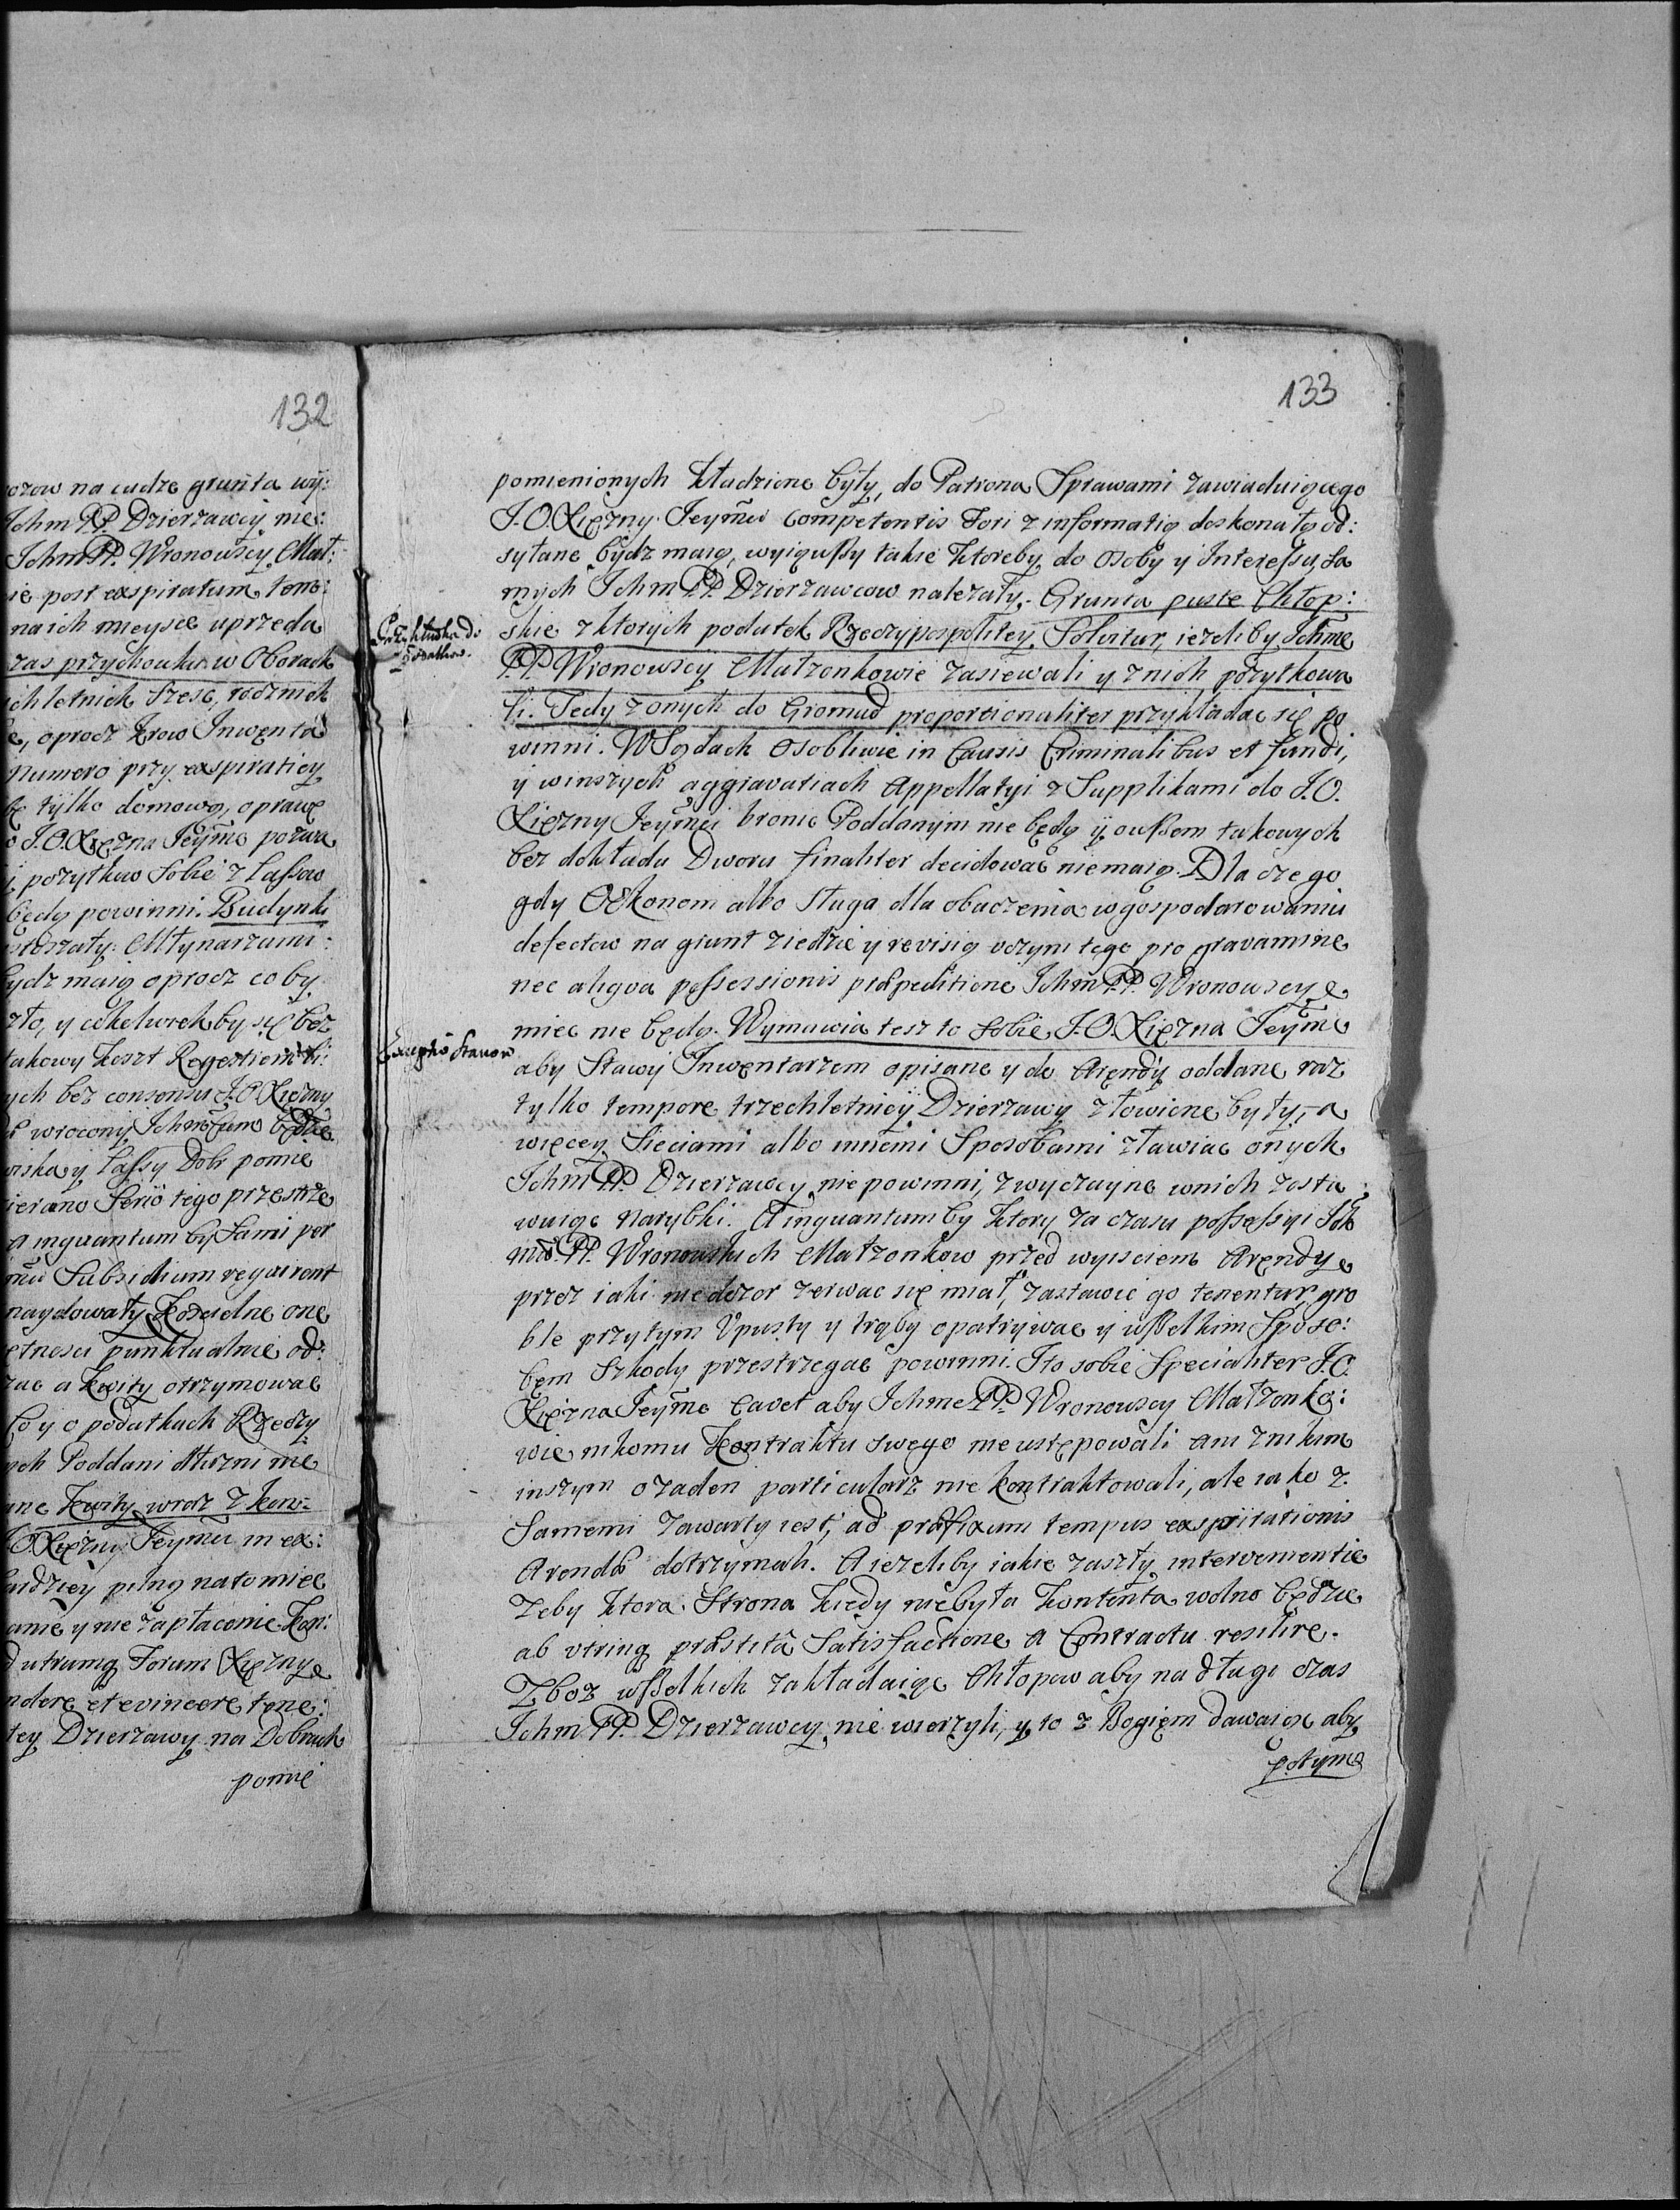 132
na cudze grunta wÿ:
Ichm PP. Dzierzawcÿ nie:
Ichm PP. Wronowscÿ Mał:
post exspiratum tene:
na ich mieysce uprzeda
zas przychowku w Oborach
letnich szesc, rocznich
, oprocz Krow Inwentâ
numero przÿ exspiratiey
tÿlko domową, oprawę
J.O.Xięzna Jeÿmć pozwa
pozytkow sobie z Lassow
będą powinni. Budynki
Młynarzami:
bydz maią oprocz co by
y cokelwiek by się bez
takowy koszt Regestrem
ych bez consensu J.O.Xięzny
wrocony Ichmciom będzie
y Lassy Dobr pomie
Seriò tego przestrze
A inquantum by Sami per
Subsidium requirent
naydowały, Koscielne one
punktualnie od:
a kwity otrzymowac
Co y o podatkach Rzeczy
Poddani dłuzni nie
kwity wraz z kon:
J.O.Xięzny Jeymci in ex:
pilną na to miec
y nie zapłacenie Kon:
utrumq Forum Xięzny
et evincere tene:
tey Dzierzawy na Dobrach
pomie
133
pomienionych kładzione były, do Patrona Sprawami zawiaduiącego
J.O.Xięzny Jeymci Competentis Fori z informatią doskonałą od:
syłane bydz maią, wyiąwszy takie ktoreby do osoby y Interessu sa
mych Ichm PP. Dzierzawcow nalezały. Grunta puste Chłop:
Przykładka do
Podatkow.
skie z ktorych podatek Rzeczypospolitey Solvitur, iezeliby Ichmc
PP Wronowscy Małzonkowie zasiewali y z nich pozytkowa
li. Tedy z onych do Gromad proportionaliter przykładac się po
winni. W Sądach osobliwie in Causis Criminalibus et fundi,
y winszych aggravatiach Appellatyi z Supplikami do J.O.
Xięzny Jeymci bronic Poddanym nie będą ÿ owszem takowych
bez dokładu Dworu finaliter decidować niemaią. Dla czego
gdy Oekonom albo Sługa dla obaczenia w gospodarowaniu
defectow na grunt ziedzie y revisią uczyni tego pro gravamine
nec aliqva possessionis praepeditione Ichm PP. Wronowscy
miec nie będą. Wymawia tesz to sobie J.O.Xięzna Jeymc
Exceptio Stawow
aby Stawy Inwentarzem opisane y do Arendy oddane raz
tylko tempore trzechletniey Dzierzawy złowione były, a
więcey Sieciami albo innemi Sposobami zławiac onych
Ichm PP. Dzierzawcy nie powinni, zwyczayne wnich zosta
wuiąc Narybki. A inquantum by ktory za czasu possessyi Ich
mć PP. Wronowskich Małzonkow przed wyisciem Arendy
przez iaki niedozor zerwac się miał, zastawic go tenentur gro
ble przytym Upusty y trąby opatrywac y wszelkim Sposo:
bem szkody przestrzegac powinni. I to sobie Specialiter J.O.
Xięzna Jeymc Cavet aby Ichmc PP. Wronowscy Małzonko:
wie nikomu Kontraktu swego nie ustępowali ani z nikim
inszym o zaden particularz nie kontraktowali, ale iako z
Samemi zawarty iest, ad praefixum tempus exspirationis
Arendae dotrzymali. A iezeliby iakie zaszły intervenientie
zeby ktora Strona kiedy niebyła kontenta wolno będzie
ab utrinq praestitâ Satisfactione a Contractu resilire.
Zboz wszelkich zakładaiąc Chłopow aby na długi czas
Ichm PP. Dzierzawcy nie wierzyli, y to z Bogiem dawaiąc aby
potym